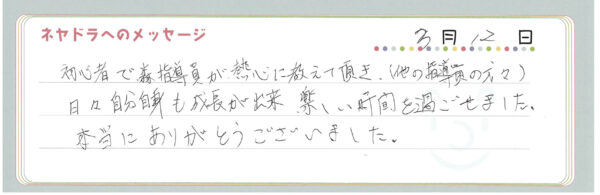 ネヤドラへのメッセージ
3月12日
初心者で森指導員が熱心に教えて頂き、(他の指導員の方々)
日々自分自身も成長が出来 楽しい時間を過ごせました。
本当にありがとうございました。